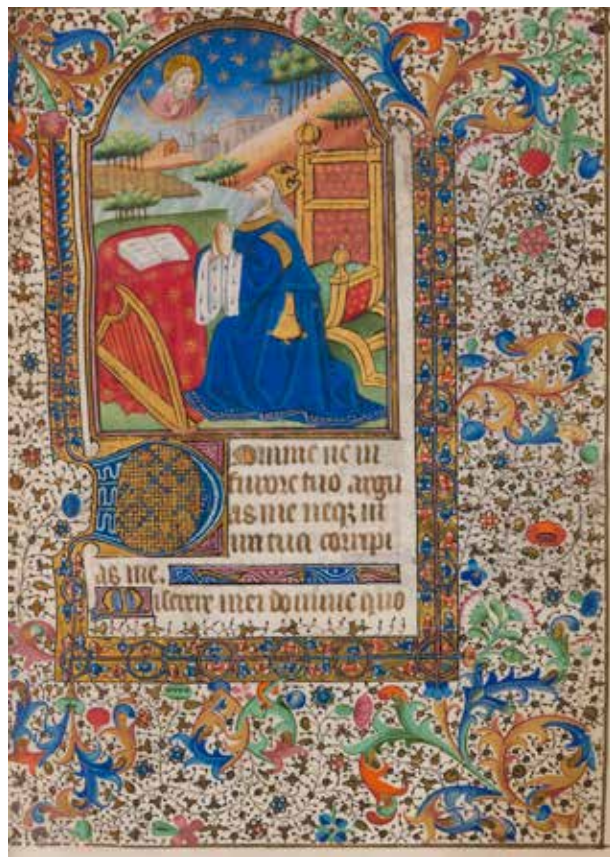 Domine ne in
furore tuo argu
as me neqz in
ira tua corripi
as me.
Miserere mei domine quo